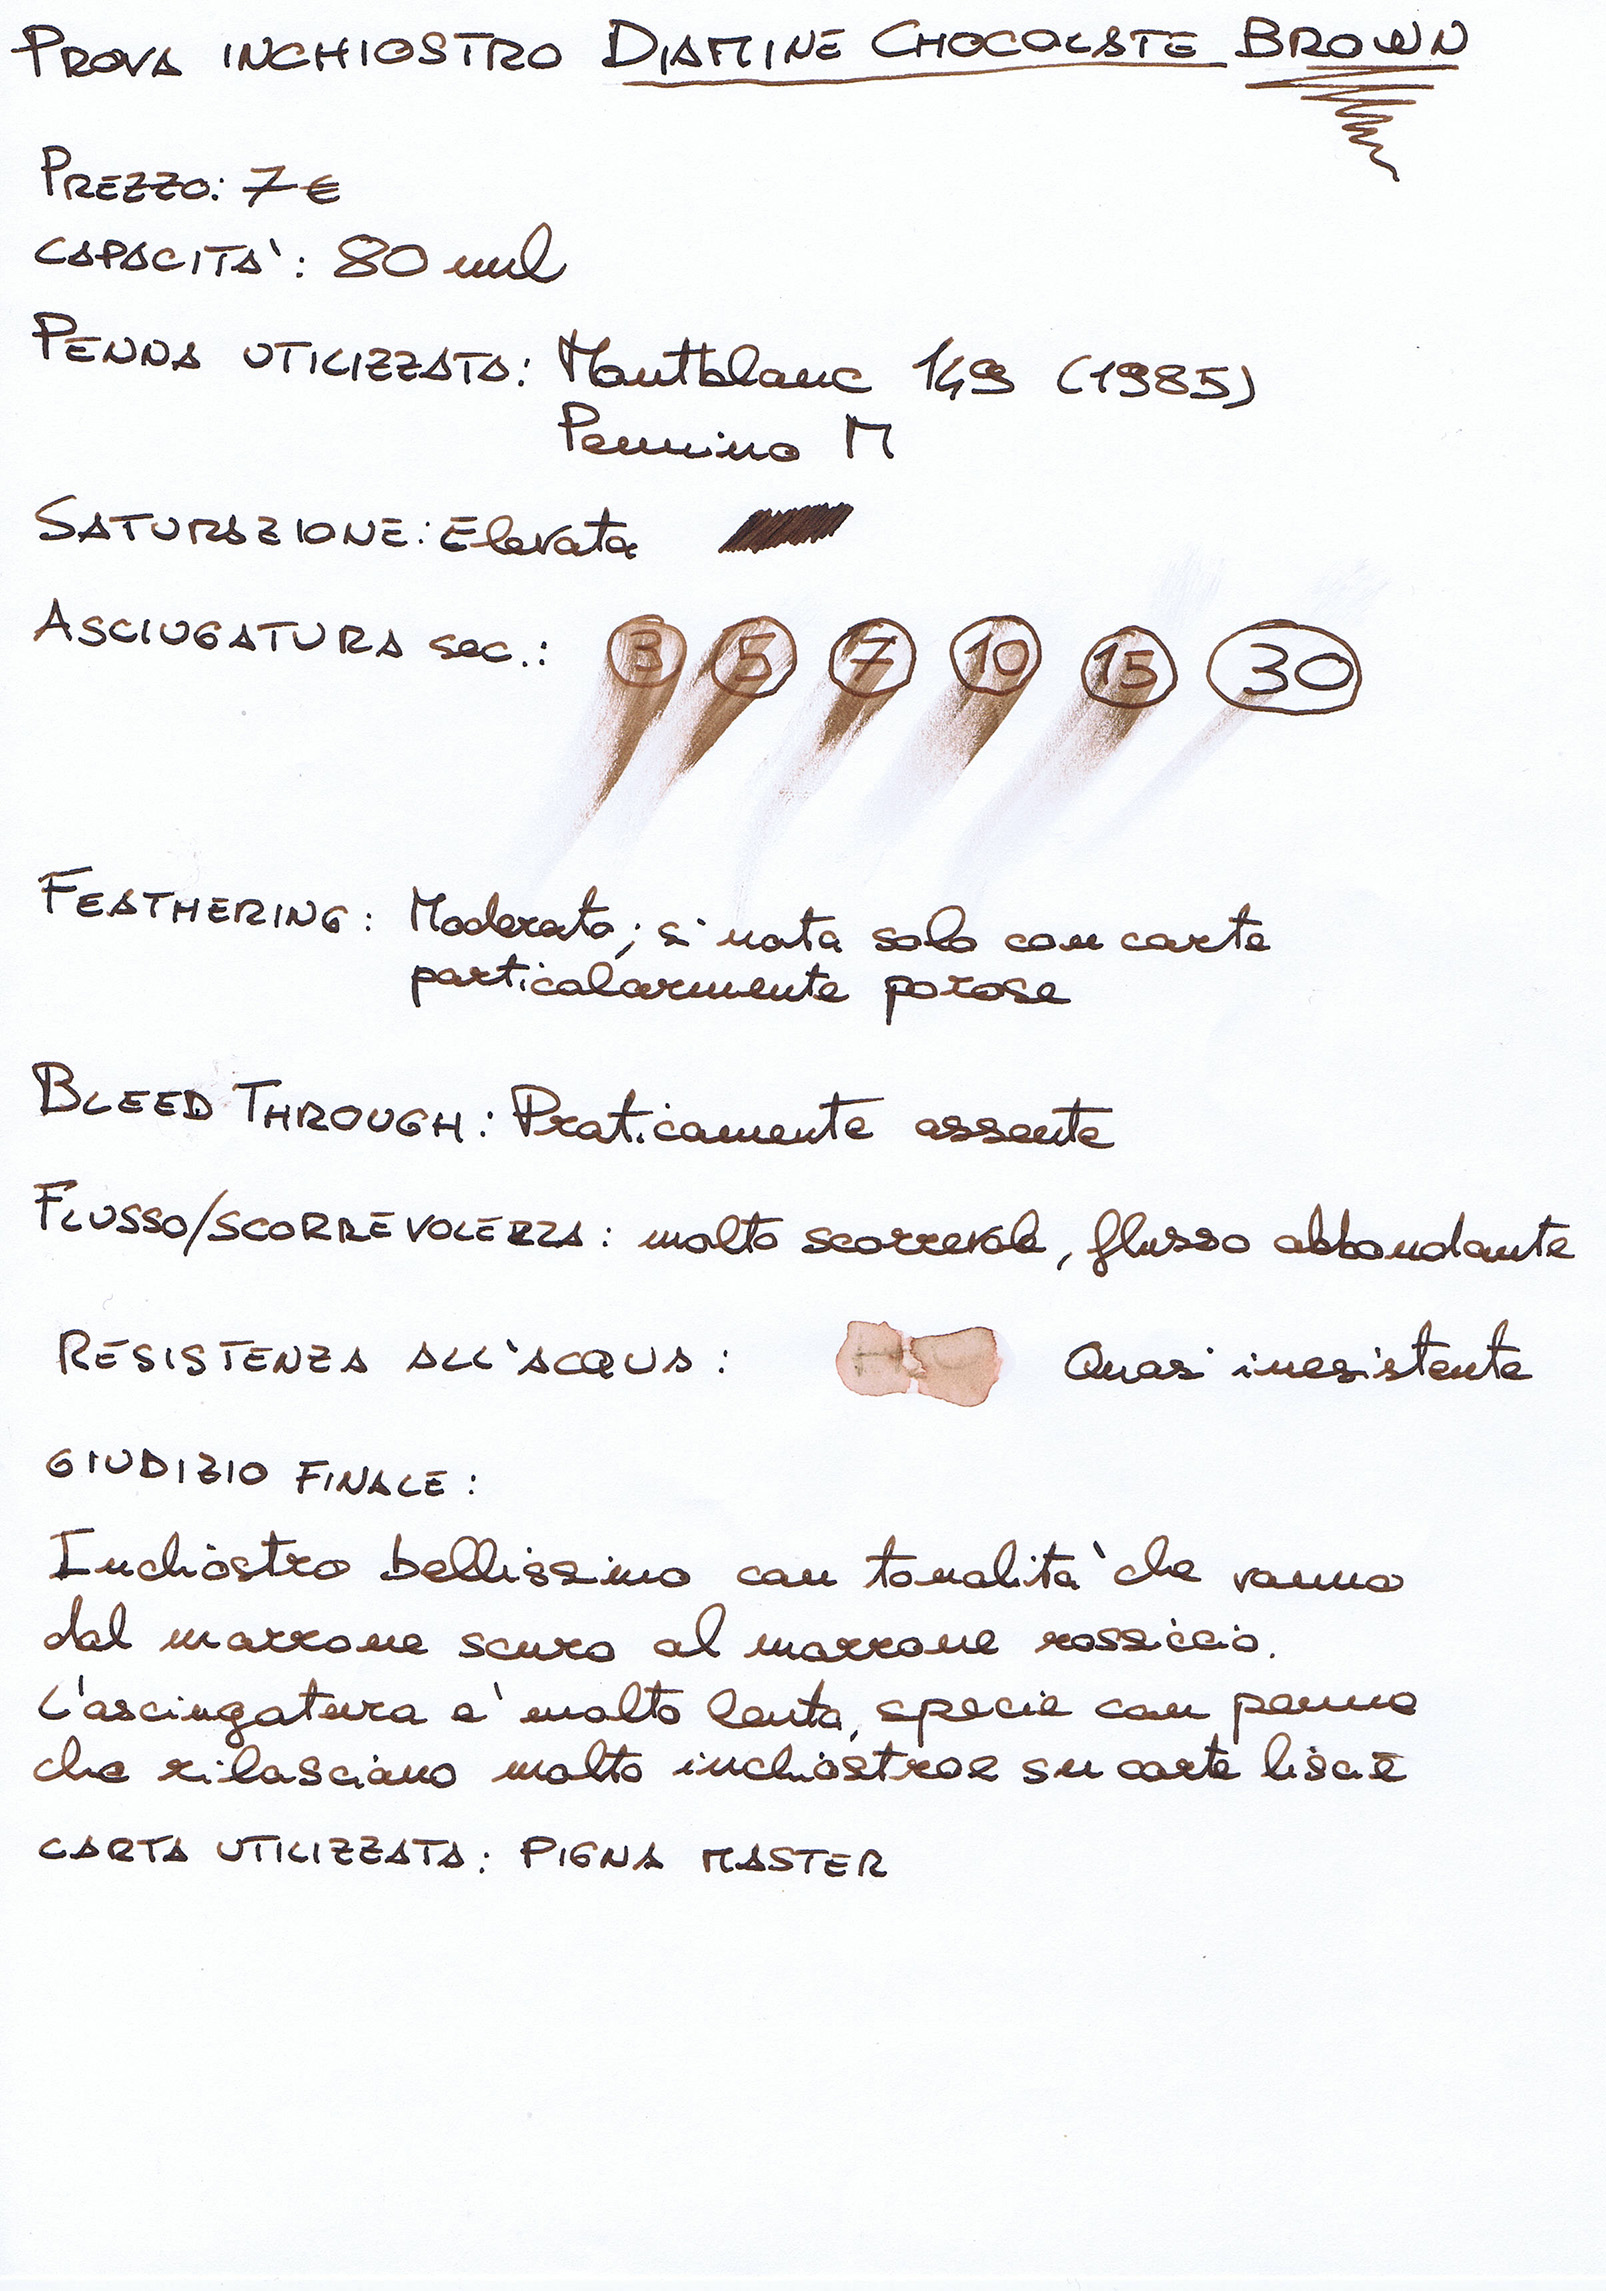 PROVA INCHIOSTRO DIAMINE CHOCOLATE BROWN
PREZZO: 7€
CAPACITA': 80 ml
PENNA UTILIZZATA: Montblanc 149 (1985)
Pennino M
SATURAZIONE: Elevata
ASCIUGATURA sec.: 3 5 7 10 15 30
FEATHERING: Moderato; si nota solo con carte
particolarmente porose
BLEED THROUGH: Praticamente assente
FLUSSO/SCORREVOLEZZA: molto scorrevole, flusso abbondante
RESISTENZA ALL'ACQUA: Quasi inesistente
GIUDIZIO FINALE:
Inchiostro bellissimo con tonalita' che vanno
dal marrone scuro al marrone rossiccio.
L'asciugatura e' molto lenta, specie con penne
che rilasciano molto inchiostro e su carte liscie
CARTA UTILIZZATA: PIGNA MASTER